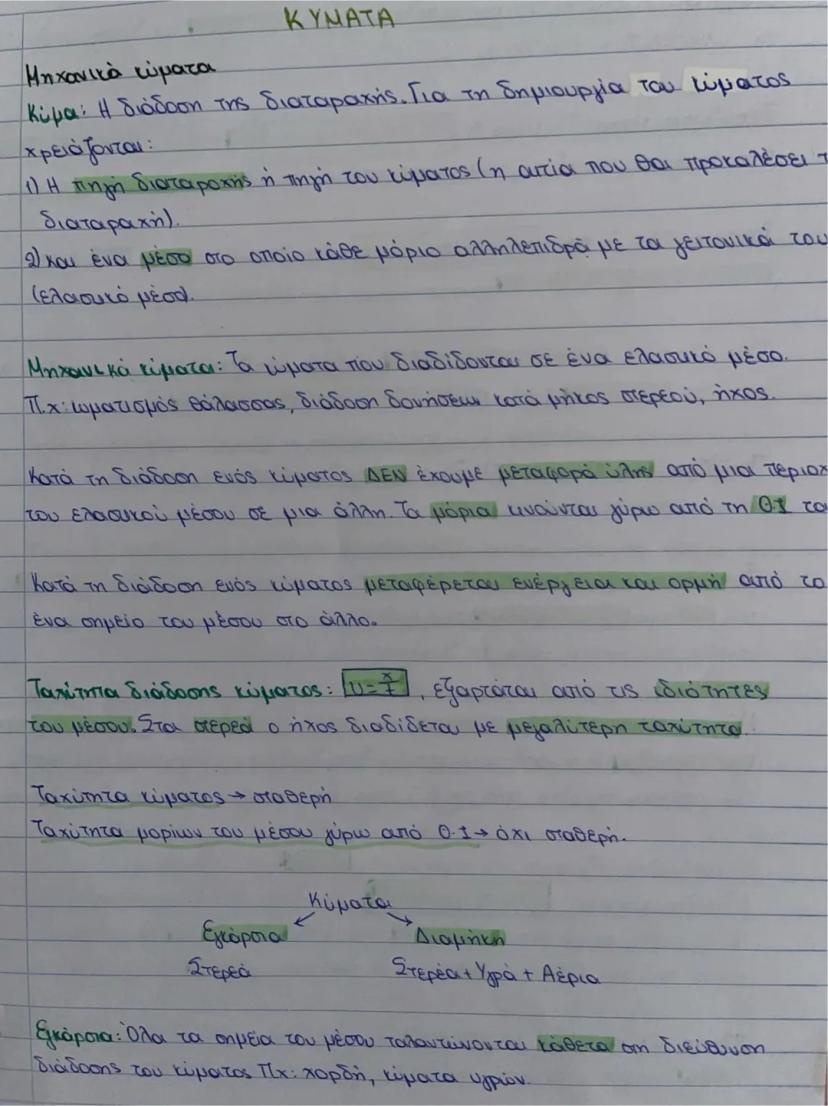 ΚΥΜΑΤΑ
Μηχανικά κύματα
Κύμα: Η διάδοση της διαταραχής. Για τη δημιουργία του κύματος
χρειάζονται:
1) Η πηγή διαταραχής ή πηγή του κύματος (η αιτία που θα προκαλέσει τ
διαταραχή).
2) και ένα μέσο στο οποίο κάθε μόριο αλληλεπιδρά με τα γειτονικά του
(ελαστικό μέσο).
Μηχανικά κύματα: Τα κύματα που διαδίδονται σε ένα ελαστικό μέσο.
Π.χ: κυματισμός θάλασσας, διάδοση δονήσεων κατά μήκος στερεού, ήχος.
Κατά τη διάδοση ενός κύματος ΔΕΝ έχουμε μεταφορά ύλης από μια περιοχ
του ελαστικού μέσου σε μια άλλη. Τα μόρια κινούνται γύρω από τη Θ.Ι το
Κατά τη διάδοση ενός κύματος μεταφέρεται ενέργεια και ορμή από το
ένα σημείο του μέσου στο άλλο.
Ταχύτητα διάδοσης κύματος: υ=x/t, εξαρτάται από τις ιδιότητες
του μέσου. Στα στερεά ο ήχος διαδίδεται με μεγαλύτερη ταχύτητα.
Ταχύτητα κύματος → σταθερή
Ταχύτητα μορίων του μέσου γύρω από Θ.Ι → όχι σταθερή.
Κύματα
Εγκάρσια Διαμήκη
Στερεά Στερεά + Υγρά + Αέρια
Εγκάρσια: Όλα τα σημεία του μέσου ταλαντώνονται κάθετα στη διεύθυνση
διάδοσης του κύματος Πχ: χορδή, κύματα υγρών.